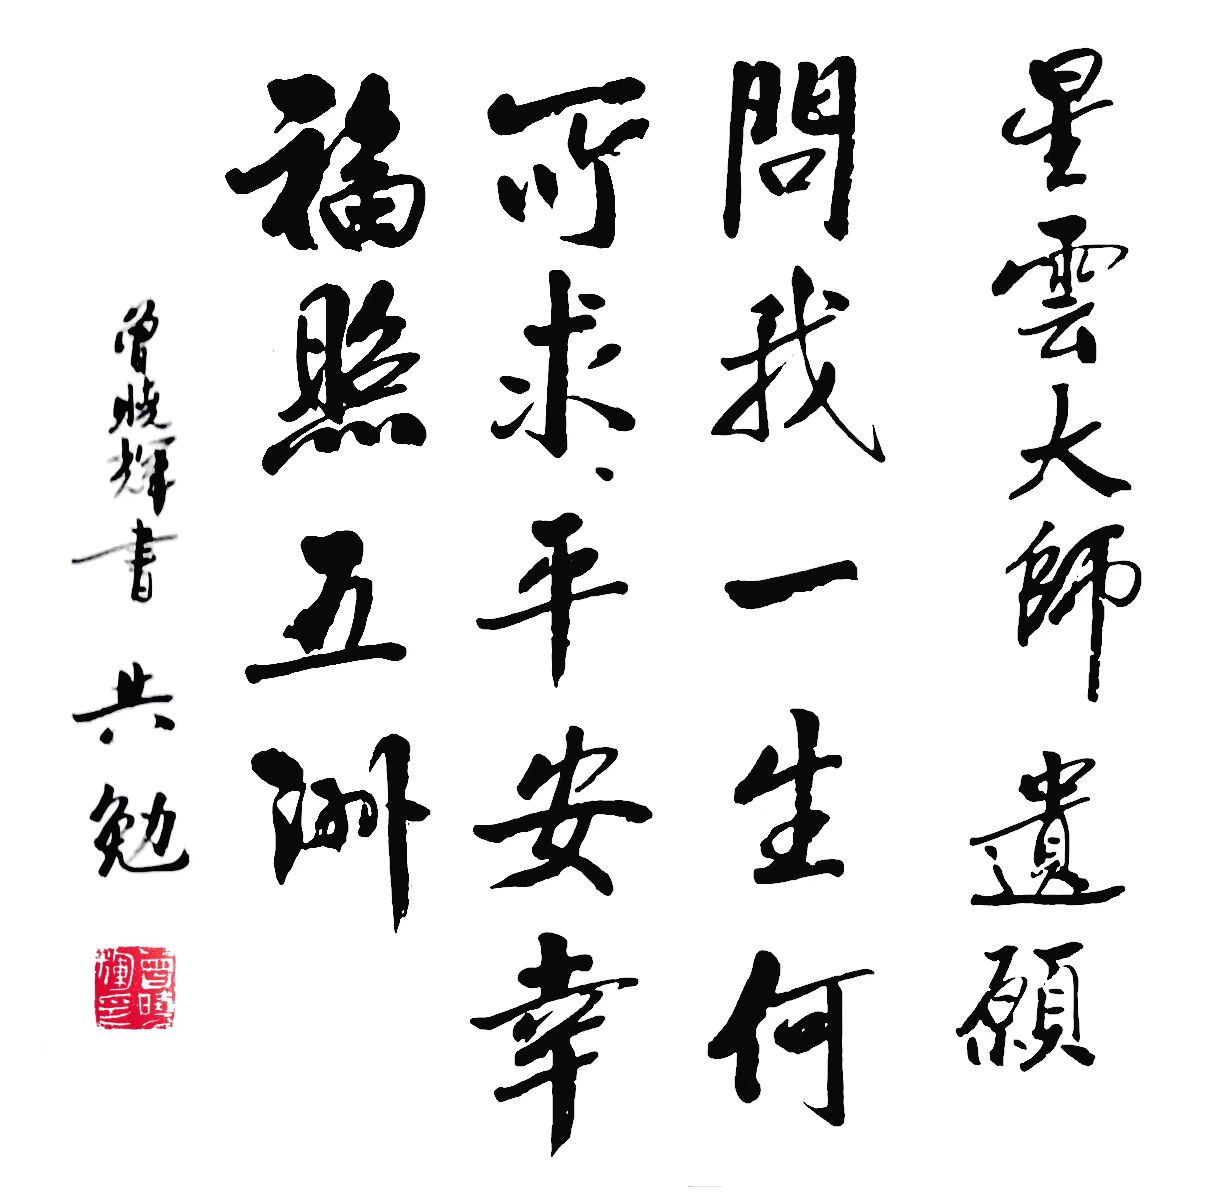 星雲大師 遺願
問我一生何
所求、平安幸
福照五洲
曾曉輝書 共勉